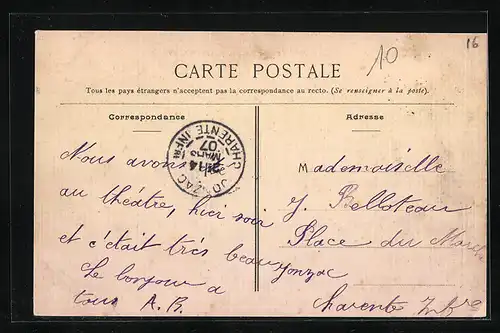 10
16
CARTE POSTALE
Tous les pays étrangers n'acceptent pas la correspondance au recto. (Se renseigner à la poste).
Correspondance
Adresse
JONZAC
MARS
07
CHARENTE INFRE
Nous avons
au théâtre, hier soir
et c'était très beau
Le bonjour a
tous A. B.
Mademoiselle
J. Belloteau
Place du
Jonzac
Charente Infre